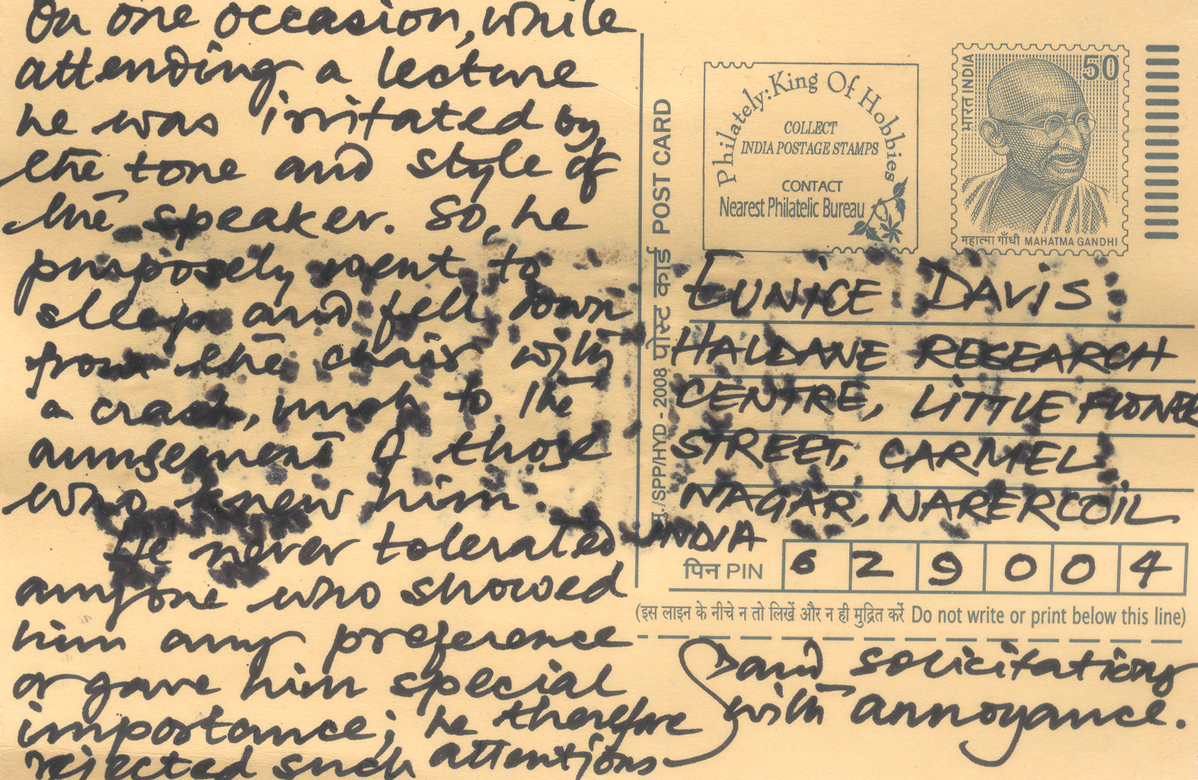 On one occasion, while
attending a lecture
he was irritated by
the tone and style of
the speaker. So, he
purposely went to
sleep and fell down
from the chair with
a crash, much to the
amusement of those
who knew him.
He never tolerated
anyone who showed
him any preference
or gave him special
importance; he therefore
rejected such attentions
and solicitations
with annoyance.
POST CARD
पोस्ट कार्ड
मु./SPP/HYD - 2008
Philately: King Of Hobbies
COLLECT
INDIA POSTAGE STAMPS
CONTACT
Nearest Philatelic Bureau
भारत INDIA
50
महात्मा गाँधी MAHATMA GANDHI
EUNICE DAVIS
HALDANE RESEARCH
CENTRE, LITTLE FLOWER
STREET, CARMEL
NAGAR, NARERCOIL
INDIA
पिन PIN 6 2 9 0 0 4
(इस लाइन के नीचे न तो लिखें और न ही मुद्रित करें Do not write or print below this line)